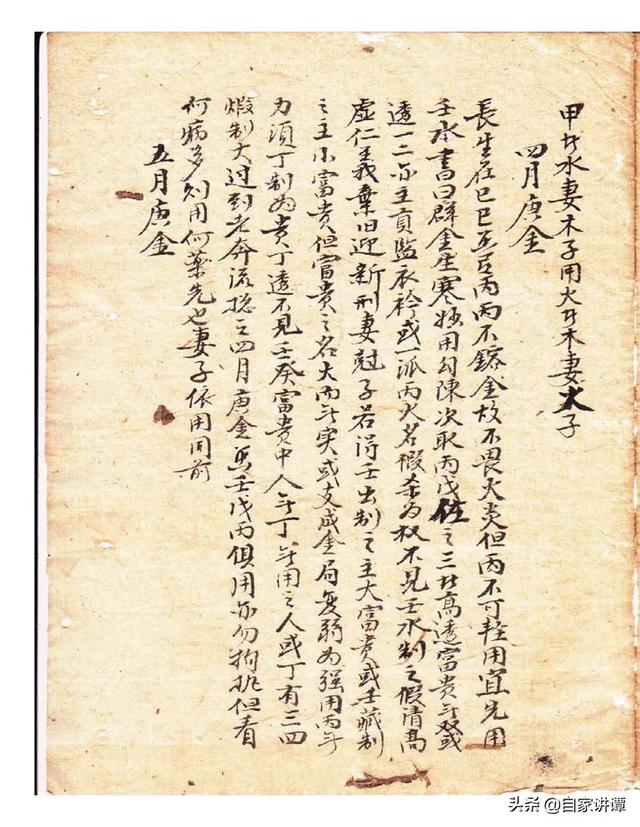 甲者水妻木子用火者木妻火子
四月庚金
長生在巳巳丙丙不鎔金故不畏火炎但丙不可軽用宜先用
壬水書曰群金生寒独用勾陳次取丙戊佐之三者高透富貴双或
透一二亦主貢監衣衿或一派丙火名假杀为权不見壬水制之假清高
虚仁義棄旧迎新刑妻尅子若得壬出制之主大富貴或壬藏制
之主小富貴但富貴之名大而实或支成金局変弱为强用丙
力須丁制为貴丁透不見壬癸富貴中人丁用之人或丁有三四
煆制大过到老奔流捴之四月庚金壬戊丙俱用亦勿拘執但看
何病多則用何薬先也妻子依用同前
五月庚金
头条 @自家讲谭